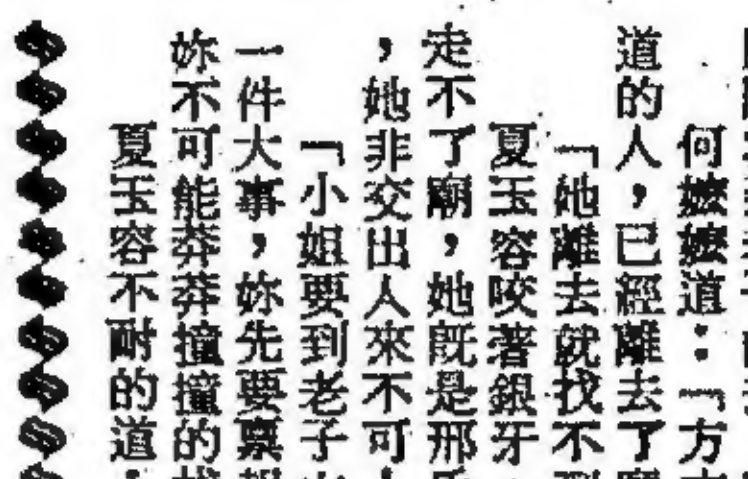 何嬤嬤道：「方
道的人，已經離去了
「她離去就找不
夏玉容咬著銀牙
走不了廟，她既是邢
，她非交出人來不可
「小姐要到老子
一件大事，妳先要稟
妳不可能莽莽撞撞的
夏玉容不耐的道